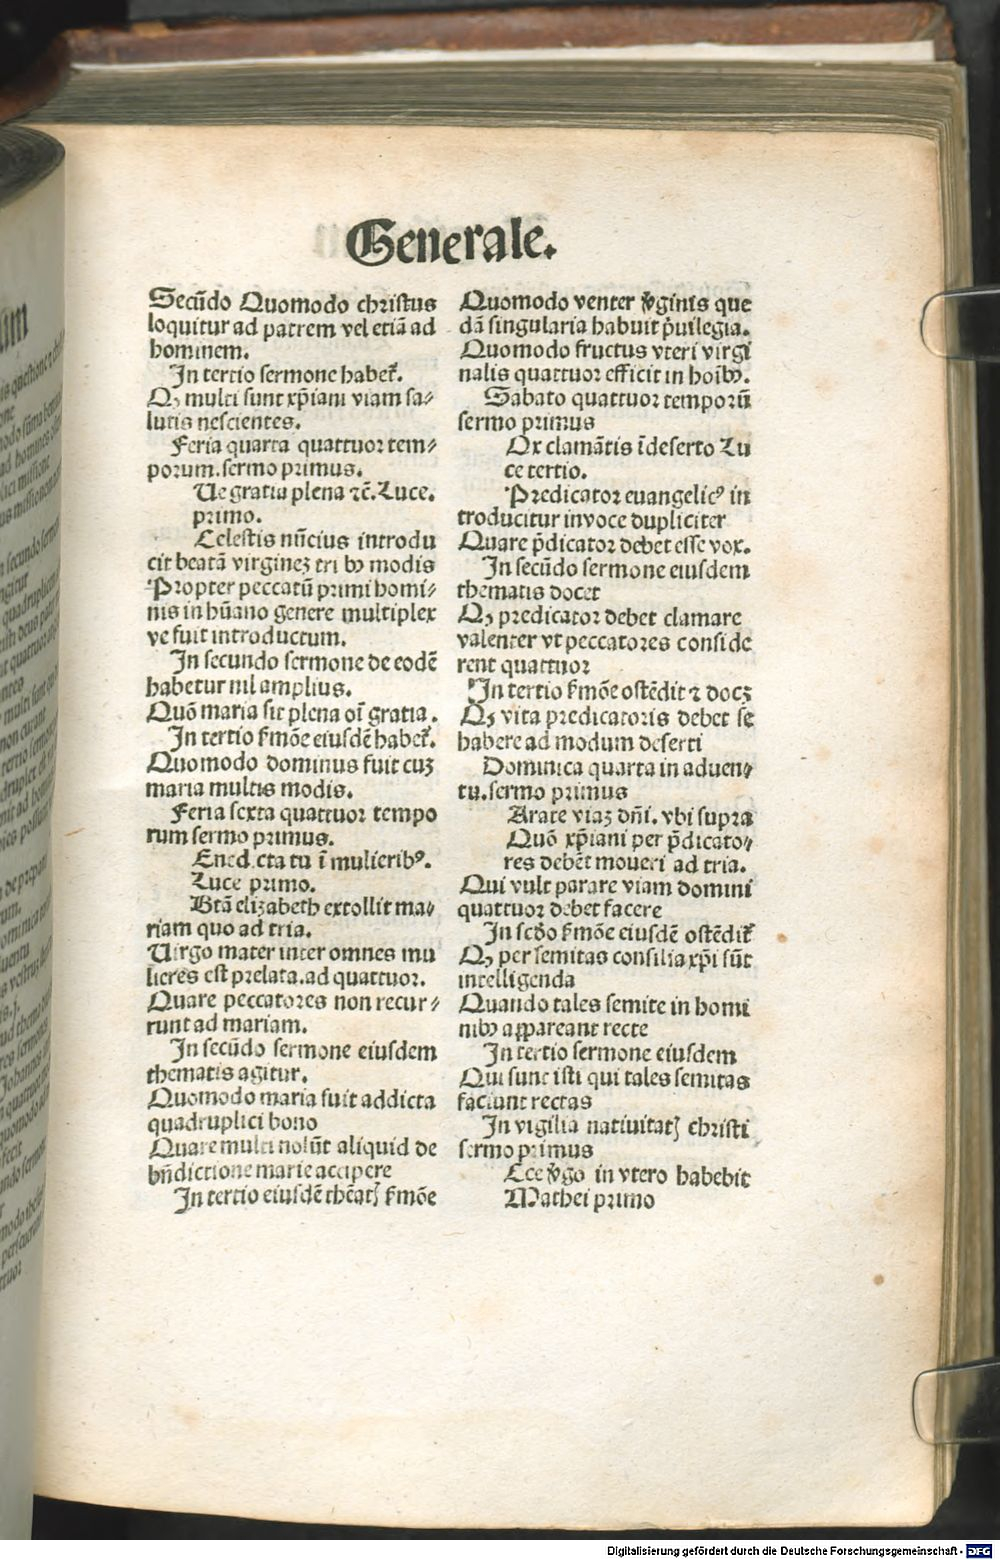 Generale.
Secūdo Quomodo christus
loquitur ad patrem vel etiā ad
hominem.
In tertio sermone habet᷑.
Qꝫ multi sunt xp̄iani viam sa⸗
lutis nescientes.
Feria quarta quattuor tem⸗
porum. sermo primus.
Ue gratia plena ⁊c̄. Luce.
primo.
Celestis nūcius introdu
cit beatā virginez tribꝰ modis
Propter peccatū primi homi⸗
nis in hūano genere multiplex
ve fuit introductum.
In secundo sermone de eodē
habetur nil amplius.
Quō maria sit plena oī gratia.
In tertio ẜmōe eiusdē habet᷑.
Quomodo dominus fuit cuȝ
maria multis modis.
Feria sexta quattuor tempo
rum sermo primus.
Ened.cta tu ī mulieribꝰ.
Luce primo.
Btā elizabeth extollit ma⸗
riam quo ad tria.
Uirgo mater inter omnes mu
lieres est prelata. ad quattuor.
Quare peccatores non recur⸗
runt ad mariam.
In secūdo sermone eiusdem
thematis agitur.
Quomodo maria fuit addicta
quadruplici bono
Quare multi nolūt aliquid de
bn̄dictione marie accipere
In tertio eiusdē thēatꝭ ẜmōe
Quomodo venter v̾ginis que
dā singularia habuit p̄uilegia.
Quomodo fructus vteri virgi
nalis quattuor efficit in hoībꝰ.
Sabato quattuor temporū
sermo primus
Ox clamātis ī deserto Lu
ce tertio.
Predicator euangelicꝰ in
troducitur in voce dupliciter
Quare p̄dicator debet esse vox.
In secūdo sermone eiusdem
thematis docet
Qꝫ predicator debet clamare
valenter vt peccatores conside
rent quattuor
In tertio ẜmōe ostēdit ⁊ docȝ
Qꝫ vita predicatoris debet se
habere ad modum deserti
Dominica quarta in aduen⸗
tu. sermo primus
Arate viaȝ dn̄i. vbi supra
Quō xp̄iani per p̄dicato⸗
res debēt moueri ad tria.
Qui vult parare viam domini
quattuor debet facere
In scd̄o ẜmōe eiusdē ostēdit᷑
Qꝫ per semitas consilia xp̄i sūt
intelligenda
Quando tales semite in homi
nibꝰ appareant recte
In tertio sermone eiusdem
Qui sunt isti qui tales semitas
faciunt rectas
In vigilia natiuitatꝭ christi
sermo primus
Ece v̾go in vtero habebit
Mathei primo
Digitalisierung gefördert durch die Deutsche Forschungsgemeinschaft - DFG